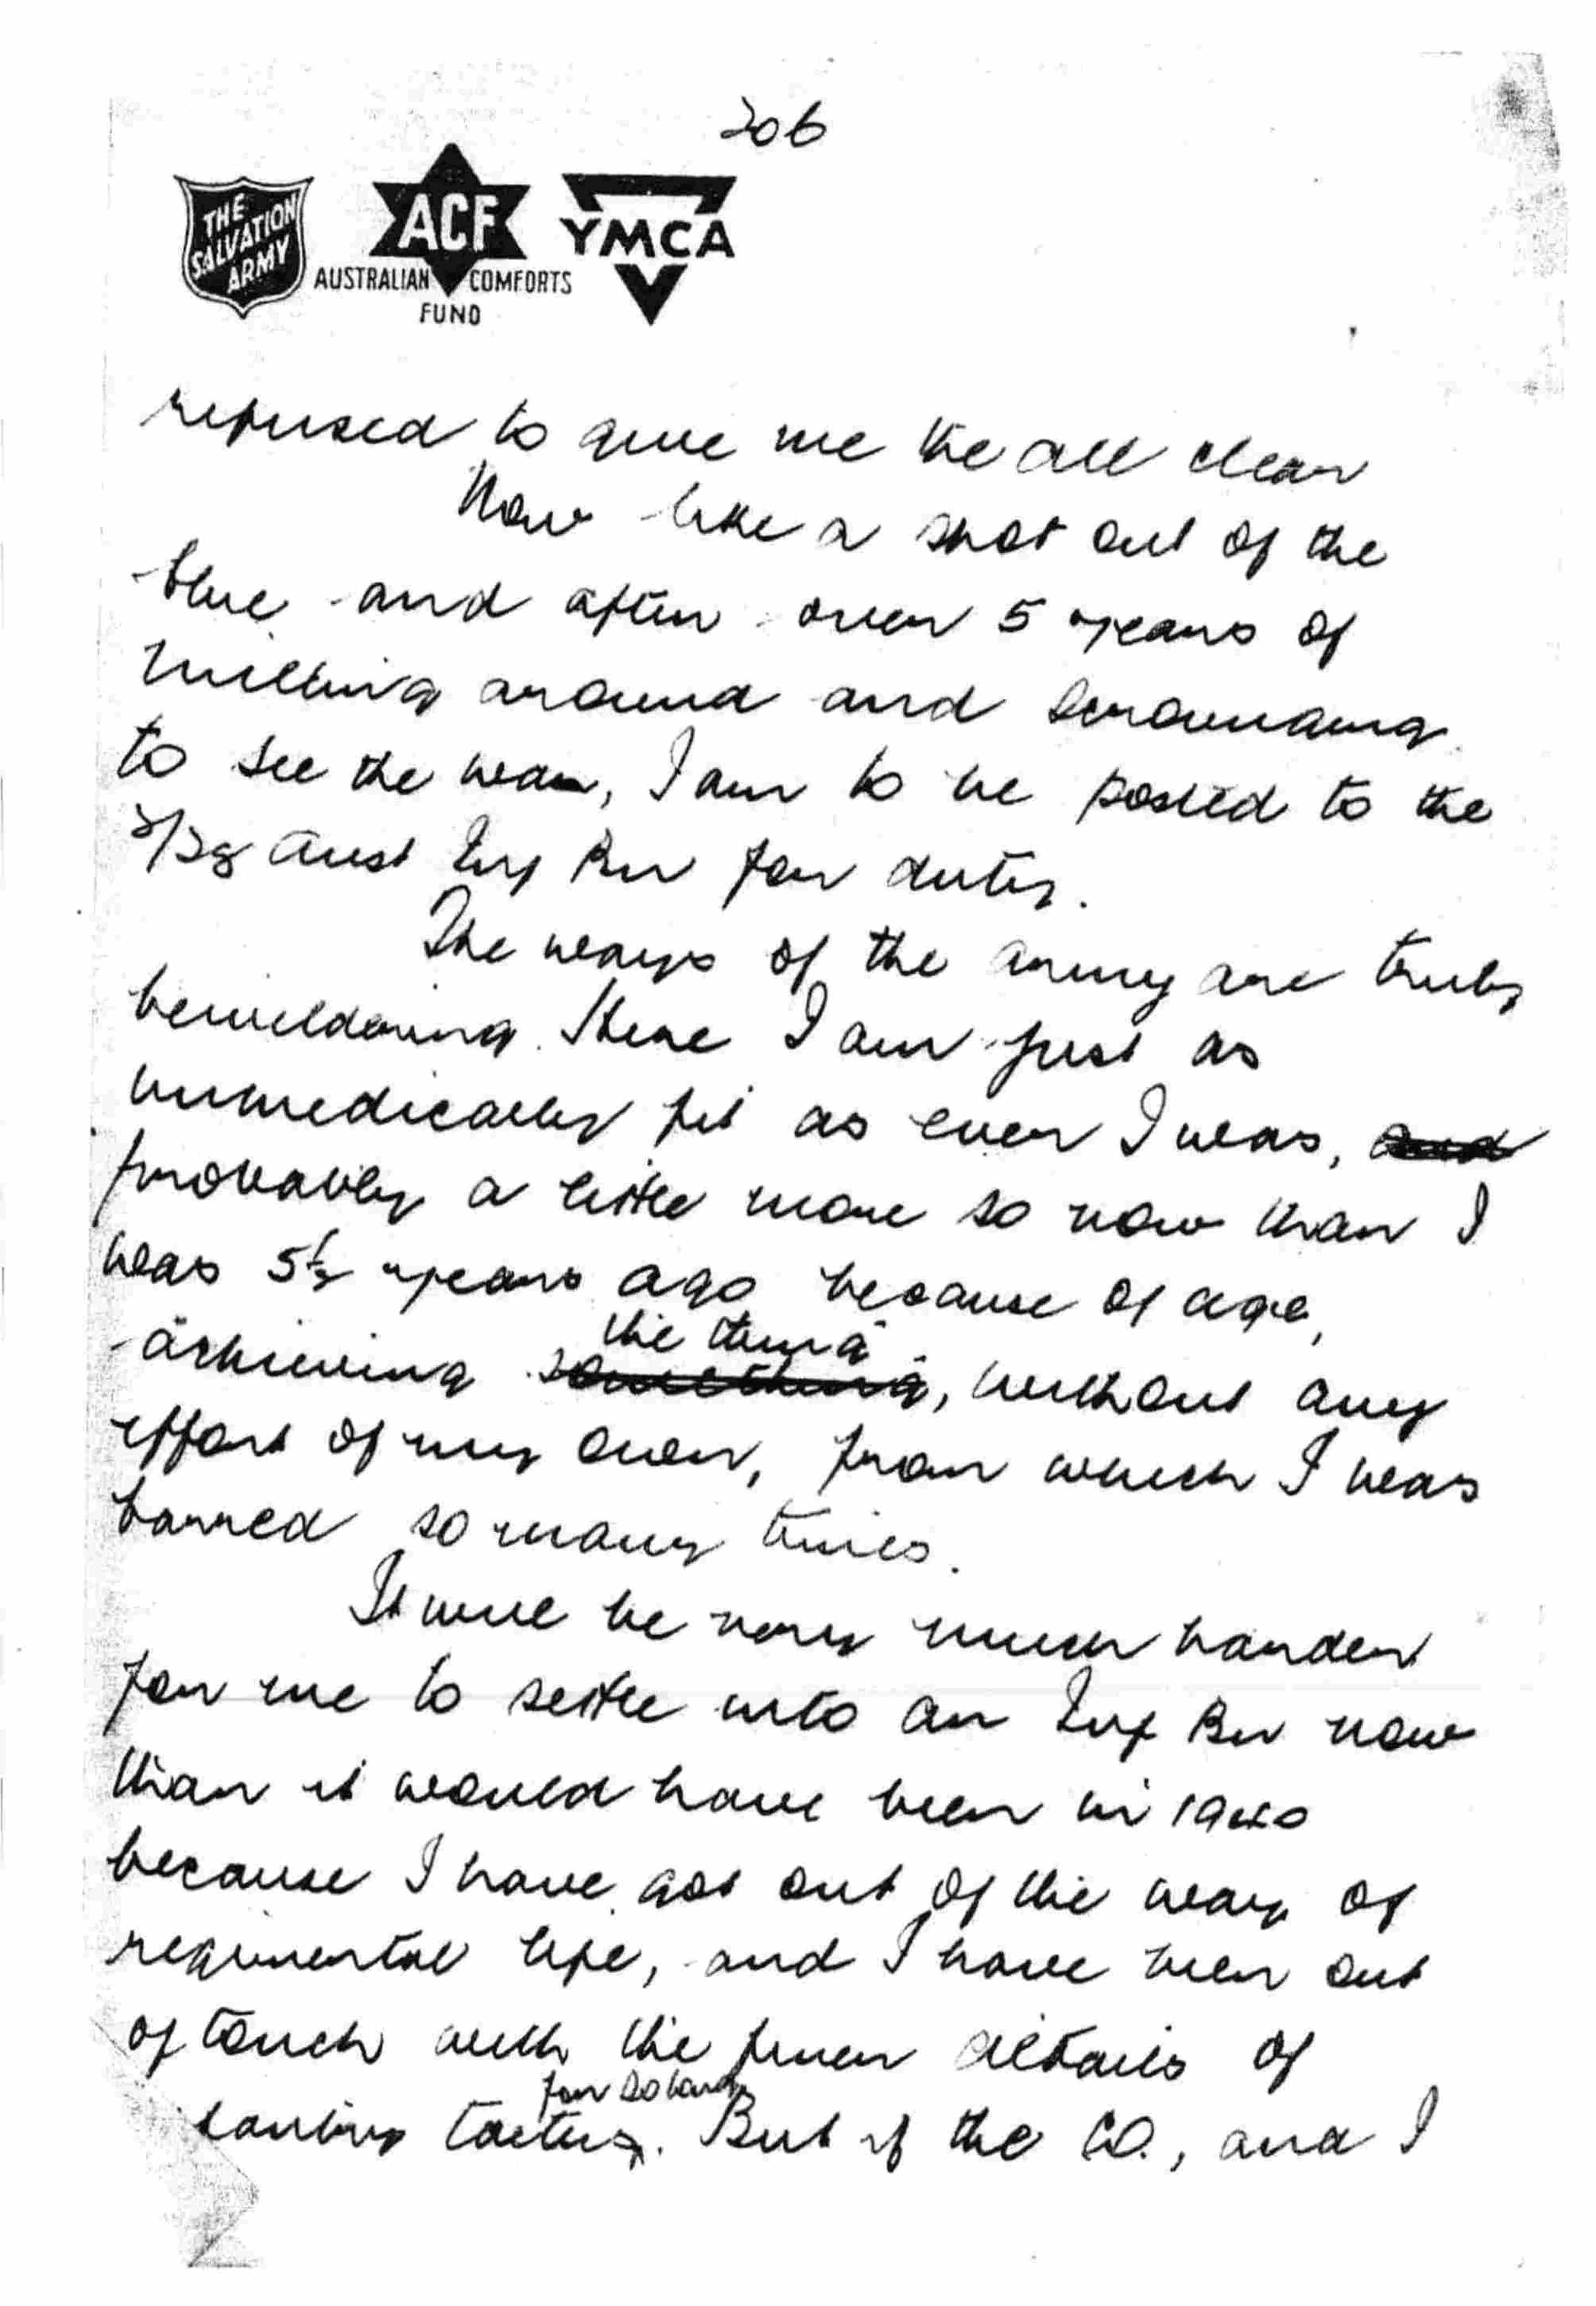 206
THE SALVATION ARMY
ACF
AUSTRALIAN COMFORTS FUND
YMCA
refused to give me the all clear
Now like a shot out of the
blue and after over 5 years of
milling around and scrounging
to see the war, I am to be posted to the
2/28 Aust Inf Bn for duty.
The ways of the army are truly
bewildering. Here I am just as
unmedically fit as ever I was, and
probably a little more so now than I
was 5½ years ago because of age,
achieving something the thing, without any
effort of my own, from which I was
barred so many times.
It will be very much harder
for me to settle into an Inf Bn now
than it would have been in 1940
because I have got out of the way of
regimental life, and I have been out
of touch with the finer details of
tactics for so long. But if the CO., and I